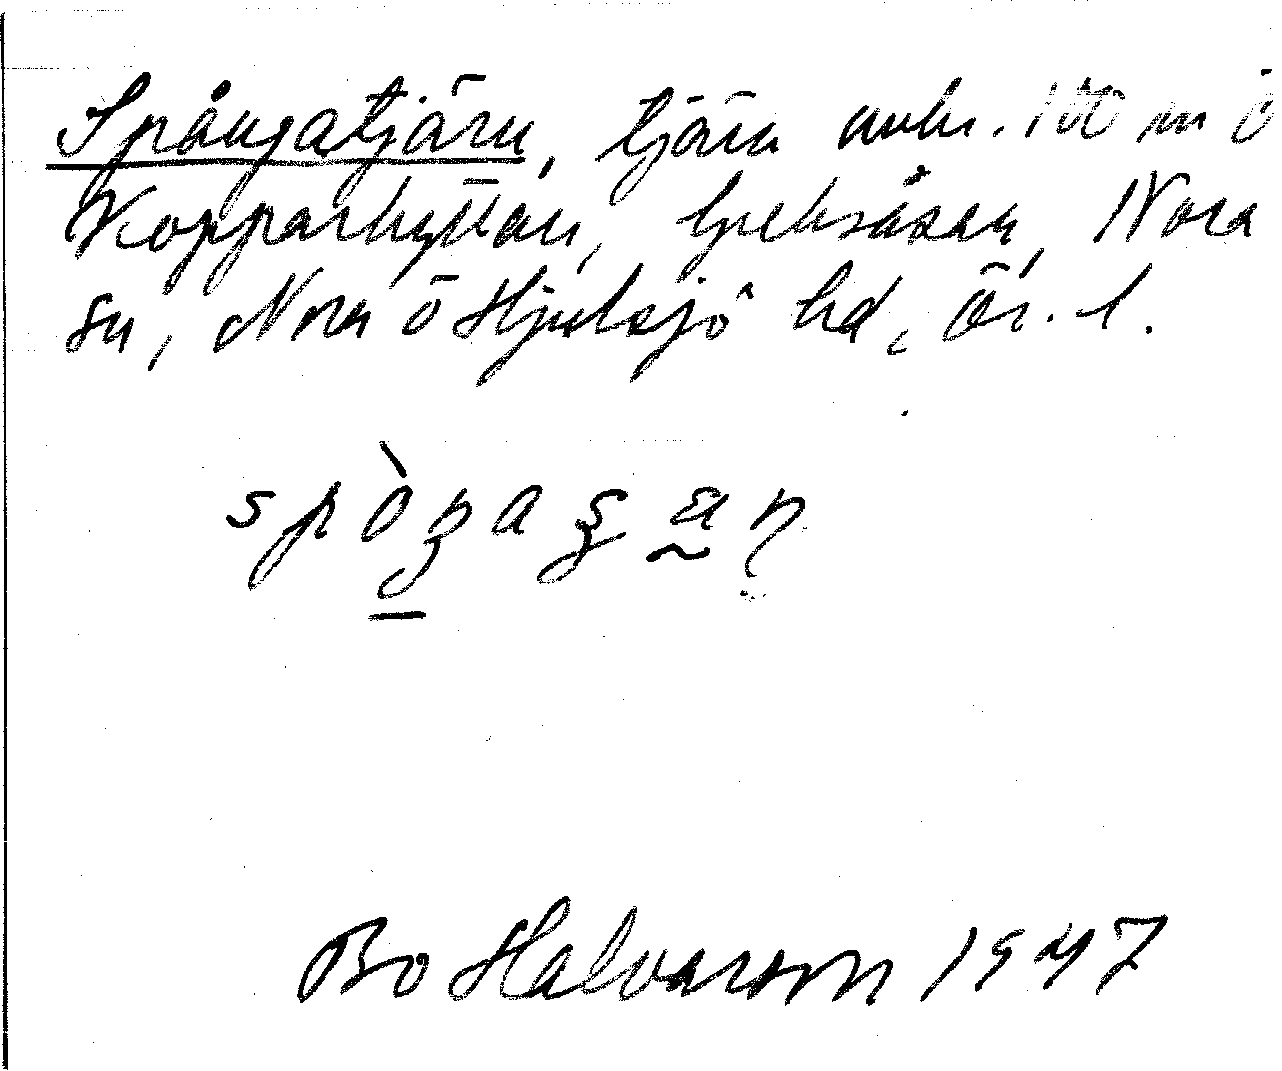 Spångatjärn, tjärn omkr. 100 m Ö
Kopparhyttan, Nora
sn, Nora o Hjulsjö hd, Ör. l.
Bo Halvarson 1947